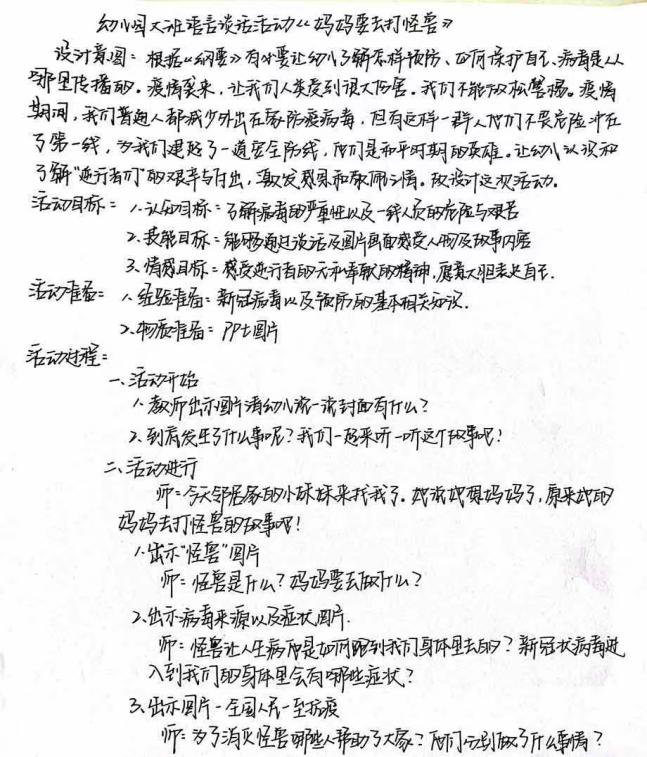 幼儿园大班语言谈话活动《妈妈要去打怪兽》
设计意图：根据《纲要》有必要让幼儿了解怎样预防、如何保护自己、病毒是从
哪里传播的。疫情袭来，让我们人类受到很大伤害。我们不能放松警惕。疫情
期间，我们普通人都减少外出在家防疫病毒，但有这样一群人他们不畏危险冲在
了第一线，为我们建起了一道安全防线，他们是和平时期的英雄。让幼儿认识和
了解“逆行者们”的艰辛与付出，激发感恩和敬佩之情。故设计这次活动。
活动目标：1.认知目标：了解病毒的严重性以及一线人员的危险与艰苦
2.技能目标：能够通过谈话及图片画面感受人物及故事内容
3.情感目标：感受逆行者的无私奉献的精神，愿意大胆表达自己.
活动准备：1.经验准备：新冠病毒以及预防的基本相关知识.
2.物质准备：PPt图片
活动过程：
一、活动开始
1.教师出示图片请幼儿说一说封面有什么？
2.到底发生了什么事呢？我们一起来听一听这个故事吧！
二、活动进行
师：今天邻居家的小妹妹来找我了。她说她想妈妈了，原来她的
妈妈去打怪兽的故事吧！
1.出示“怪兽”图片
师：怪兽是什么？妈妈要去做什么？
2.出示病毒来源以及症状图片.
师：怪兽让人生病他是如何跑到我们身体里去的？新冠状病毒进
入到我们的身体里会有哪些症状？
3.出示图片-全国人民一至抗疫
师：为了消灭怪兽哪些人帮助了大家？他们分别做了什么事情？